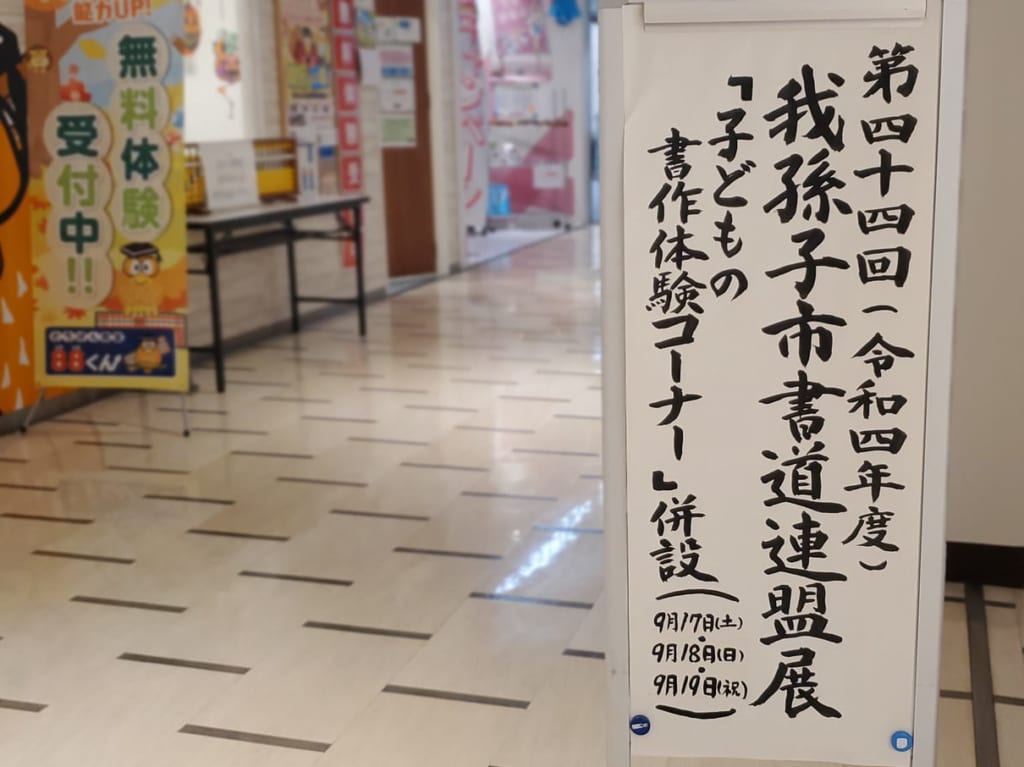 第四十四回(令和四年度)
我孫子市書道連盟展
「子どもの
書作体験コーナー」併設
(9月17日(土)・
9月18日(日)・
9月19日(祝))
能力UP!
無料体験
受付中!!
くん